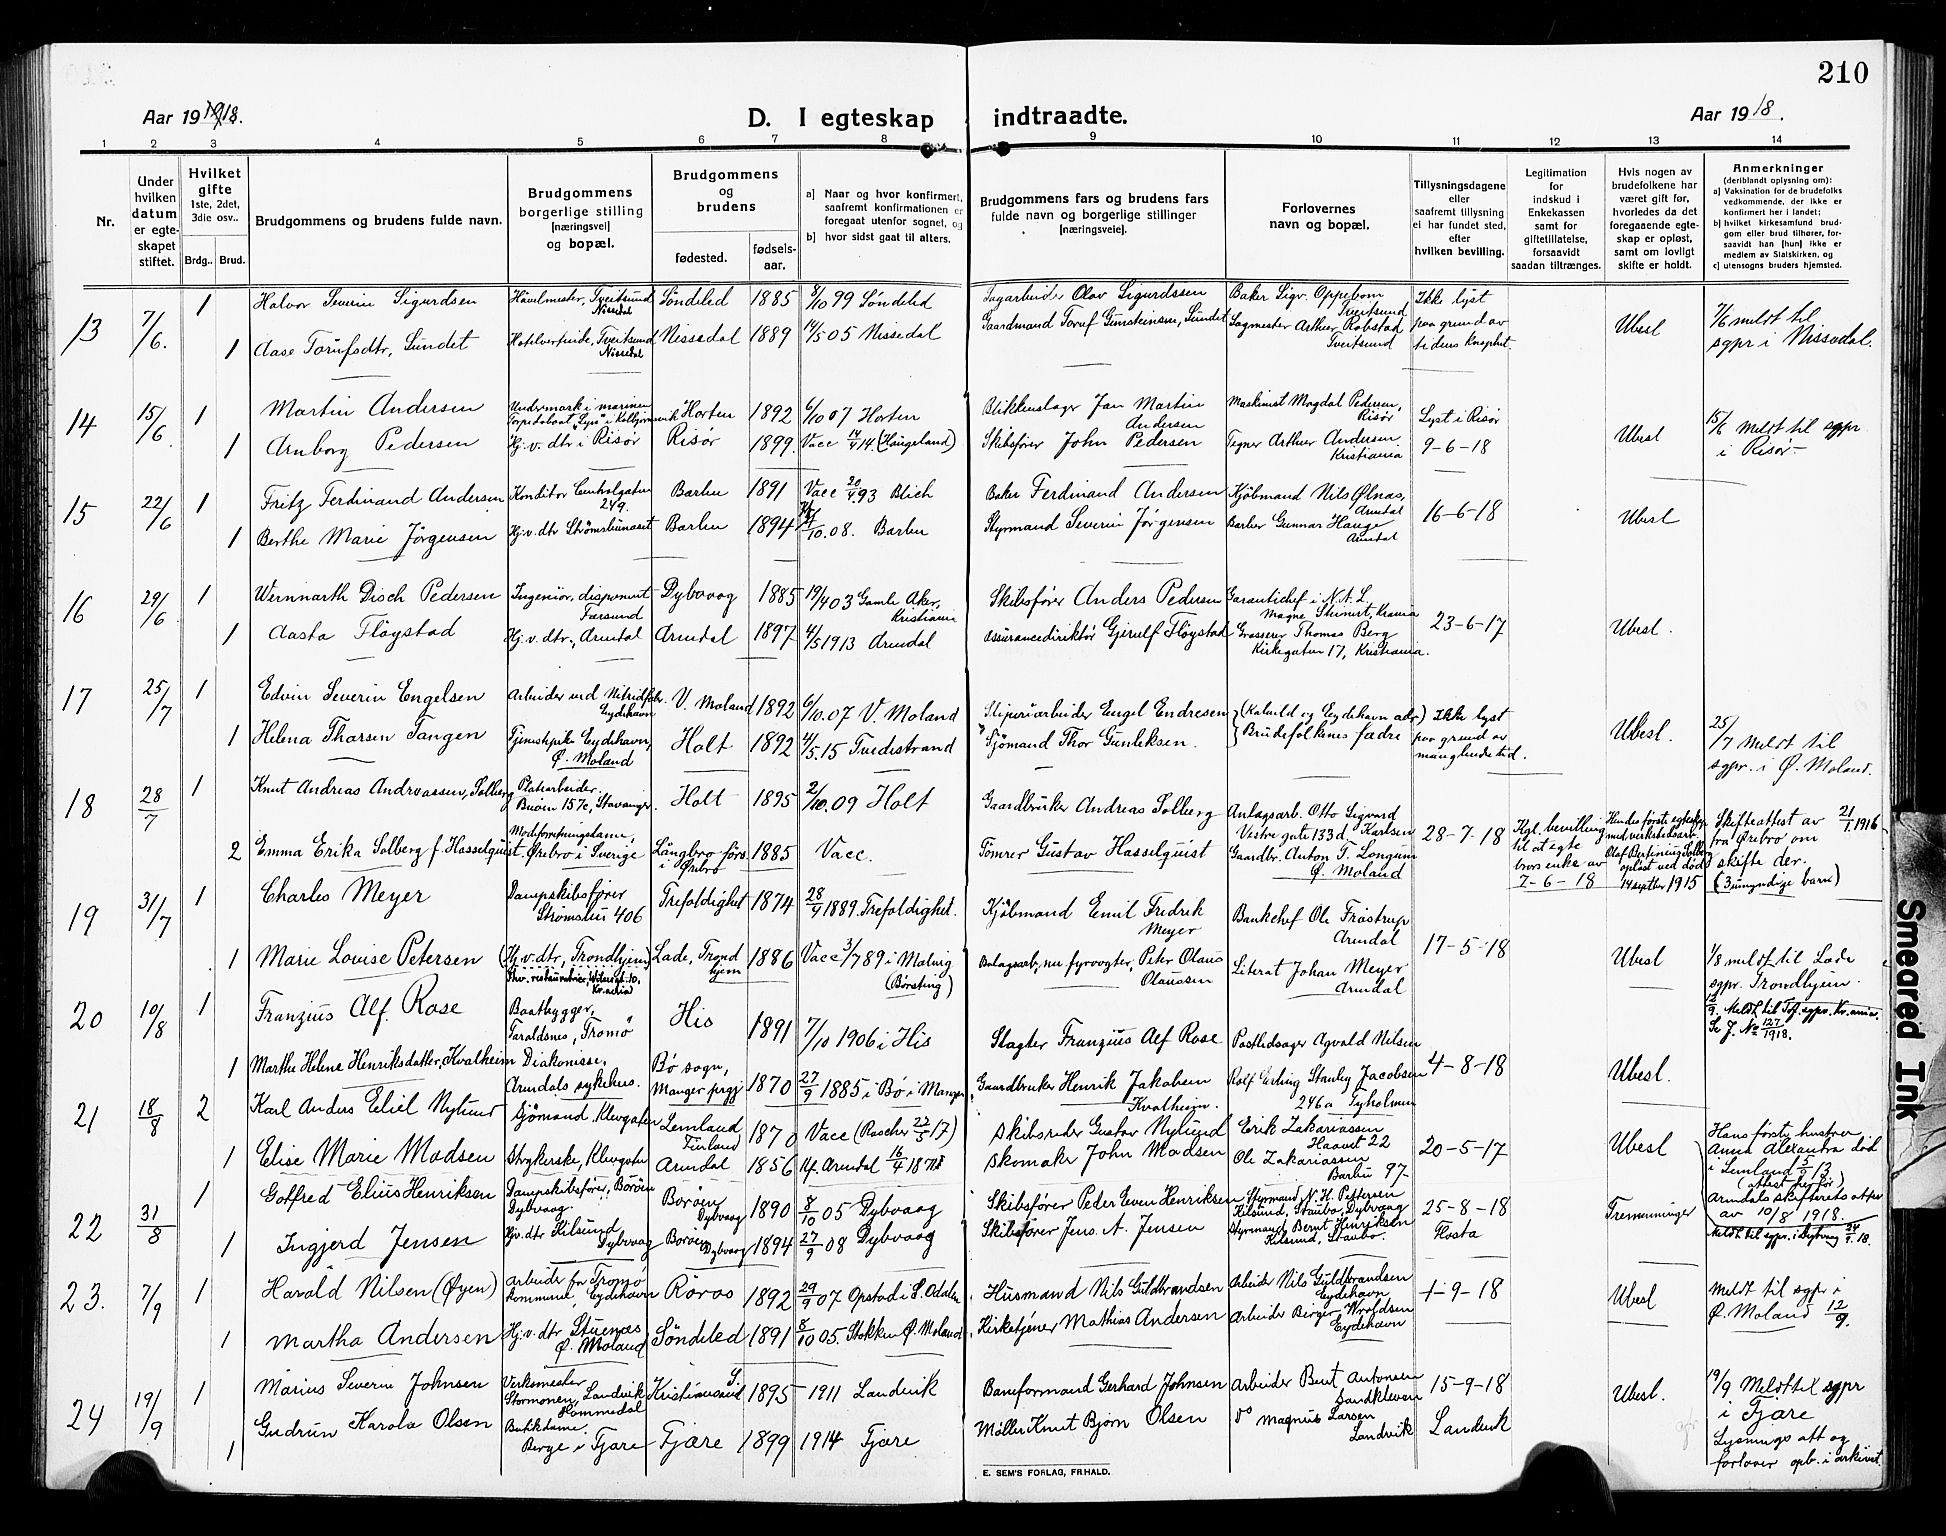 210
Aar 1918.
D. I egteskap indtraadte.
Aar 1918.
1 2 3 4 5 6 7 8 9 10 11 12 13 14
Nr.
Under hvilken datum er egteskapet stiftet.
Hvilket gifte 1ste, 2det, 3die osv..
Brdg.. Brud.
Brudgommens og brudens fulde navn.
Brudgommens borgerlige stilling [næringsvei] og bopæl.
Brudgommens og brudens
fødested.
fødsels-aar.
a) Naar og hvor konfirmert, saafremt konfirmationen er foregaat utenfor sognet, og
b) hvor sidst gaat til alters.
Brudgommens fars og brudens fars fulde navn og borgerlige stillinger [næringsveie].
Forlovernes navn og bopæl.
Tillysningsdagene eller saafremt tillysning ei har fundet sted, efter hvilken bevilling.
Legitimation for indskud i Enkekassen samt for giftetillatelse, forsaavidt saadan tiltrænges.
Hvis nogen av brudefolkene har været gift før, hvorledes da det foregaaende egteskap er opløst, samt om lovligt skifte er holdt.
Anmerkninger
(deriblandt oplysning om):
a) Vaksination for de brudefolks vedkommende, der ikke er konfirmert her i landet;
b) hvilket kirkesamfund brudgom eller brud tilhører, forsaavidt han [hun] ikke er medlem av Statskirken, og
c) utensogns bruders hjemsted.
13 7/6. 1 Halvor Severin Sigurdsen Tveitsund Nissedal Søndeled 1885 8/10 99 Søndeled Sagarbeider Olav Sigurdssen Baker Sigv. Oppebøen Tveitsund Ikke lyst
1 Aase Torufsdtr. Sundet Tveitsund Nissedal Nissedal 1889 14/5 05 Nissedal Gaardmand Toruf Gunsteinsen, Sundet Sagmester Arthur Robstad Tveitsund paa grund av tidens knaphet. Ubesl 7/6 meldt til sgpr i Nissedal.
14 15/6 1 Martin Andersen Undermark i marinen Torpedobaat "Lyn" i Kolbjørnsvik Horten 1892 6/10 07 Horten Blikkenslager Jan Martin Andersen Maskinist Magdal Pedersen, Risør Lyst i Risør
1 Arnborg Pedersen Hj.v. dtr i Risør Risør 1899. Vacc 14/9 14 (Haugeland) Skibsfører John Pedersen Tegner Arthur Andersen Kristiania 9-6-18 Ubesl 15/6 meldt til sgpr i Risør
15 22/6 1 Fritz Ferdinand Andersen Konditor Centralgaten 249. Barbu 1891 Vacc 20/4 93 Blich Baker Ferdinand Andersen Kjøbmand Nils Ølnæs, Arendal 16-6-18
1 Berthe Marie Jørgensen Hj.v. dtr Strømsbunæset Barbu 1894 /10.08. Barbu Styrmand Severin Jørgensen Barber Gunnar Hauge Arendal Ubesl
16 29/6 1 Wernnarth Disch Pedersen Ingeniør, disponent Farsund Dybvaag 1885 19/4 03 Gamle Aker, Kristiania Skibsfører Anders Pedersen Garantichef i N.A.L. Magne Steinert, Krania 23-6-17
1 Aasta Fløystad Hj.v. dtr., Arendal Arendal 1897 4/5 1913 Arendal Assurancedirektør Gjerulf Fløystad Grosserer Thomas Berg Kirkegaten 17, Kristiania. Ubesl.
17 25/7 1 Edvin Severin Engelsen Arbeider ved Nitridfabr. Eydehavn V. Moland 1892 6/10.07 V. Moland Stiperiarbeider Engel Endresen (Kalseld og Eydehavn adr) Ikke lyst
1 Helena Tharsen Tangen Tjenestepike Eydehavn, Ø. Moland Holt 1892 4/5.15 Tvedestrand Sjømand Thor Gunleksen. Brudefolkenes fædre paa grund av manglende tid. Ubesl. 25/7 Meldt til sgpr. i Ø. Moland.
18 28/7 1 Knut Andreas Andreassen, Solberg Platearbeider. Buøen 157c, Stavanger. Holt 1895 2/10.09 Holt Gaardbruker Andreas Solberg Anlagsarb. Otto Sigvard Karlsen Vestregate 133d 28-7-18 Kgl. bevilling til at egte brors enke av 7-6-18 Hendes første egteskap med verkstedsarb. Olaf Bertinius Solberg opløst ved død 14 septbr 1915 Skifteattest av 21/1 1916 fra Ørebro om skifte der. (3 umyndige barn)
2 Emma Erika Solberg f. Hasselquist. Modeforretningsdame, Ørebro i Sverige Långbro förs. i Ørebro 1885 Vacc. Tømrer Gustav Hasselquist Gaardbr. Anton T. Longum Ø. Moland
19 31/7 1 Charles Meyer Dampskibsfører Strømsbu 406 Trefoldighet 1874 28/4 1889. Trefoldighet. Kjøbmand Emil Fredrik Meyer Bankchef Ole Frøstrup Arendal 17-5-18
1 Marie Lovise Petersen (Hj.v. dtr, Trondhjem) Lade, Trondhjem 1886 Vacc 3/7 89 i Malvig (Børsting) Anlagsarb, nu fyrvogter, Peter Olaus Olaussen Literat Johan Meyer Arendal Ubesl 1/8 meldt til Lade sgpr. Trondhjem. 12/9. Meldt til Tøf. sgpr. Kr.ania. Se J. No 127/1918.
20 10/8 1 Franzius Alf. Rose Baatbygger, Faraldsnes, Tromø His 1891 7/10 1906 i His Slagter Franzius Alf Rose Postbidsager Agvald Nilsen 4-8-18
1 Marthe Helene Henriksdatter, Kvalheim Diakonisse. Arendals sykehus. Bø sogn, Manger prgj 1870 27/9 1885 i Bø i Manger Gaardbruker Henrik Jakobsen Kvalheim. Rolf Erling Stanley Jacobsen 246a Tyholmen Ubesl.
21 18/8 2 Karl Anders Eliel Nylund Sjømand, Klevgaten Lemland Finland 1870 Vacc (Rascher 22/5 17) Skibsreder Gustav Nylund Erik Zakariassen Haavet 22 20-5-17
1 Elise Marie Madsen Strykerske, Klevgaten Arendal 1856 Arendal 16/4 1871 Skomaker John Madsen Ole Zakariassen Barbu 97- Ubesl Hans første hustru Anna Alexandra død i Lemland 5/2 13 (attest herfor) Arendals skifterets attest av 10/8 1918.
22 31/8 1 Gotfred Elius Henriksen Dampskibsfører, Borøen Dybvaag. Borøen Dybvaag 1890 8/10 05 Dybvaag Skibsfører Peder Even Henriksen Styrmand N. H. Pettersen Kilsund, Staubø, Dybvaag 25-8-18
1 Ingjerd Jensen Hj.v. dtr Kilsund Dybvaag Borøen Dybvaag 1894 27/9 08 Dybvaag Skibsfører Jens A. Jensen Styrmand Bernt Henriksen Kilsund, Staubø. Flosta Tremenninger Meldt til sgpr. i Dybvaag 24/9.18.
23. 7/9 1 Harald Nilsen (Øyen) Arbeider for Tromø kommune, Eydehavn Røros 1892 29/9 07 Opstad i S. Odalen Husmand Nils Guldbrandsen Arbeider Nils Guldbrandsen Eydehavn 1-9-18
1 Martha Andersen Hj.v. dtr Stuenæs Ø. Moland Søndeled 1891 8/10 05. Stokken Ø. Moland Kirketjener Mathias Andersen Arbeider Birger Wroldsen Eydehavn Ubesl Meldt til sgpr i Ø. Moland 12/9.
24 19/9 1 Marius Severin Johnsen Verksmester Stormoen, Landvik Hommedal Kristianssand S. 1895 1911 Landvik Baneformand Gerhard Johnsen Arbeider Bent Antonsen Sandkleven 15-9-18
1 Gudrun Karola Olsen Butikdame. Berge i Fjære Fjære 1899 1914 Fjære Møller Knut Bjørn Olsen do Magnus Larsen Landvik Landvik Ubesl. 19/9 Meldt til sgpr i Fjære Lysnings att og forlover opb. i arkivet.
E. SEM'S FORLAG, FR.HALD.
Smeared Ink